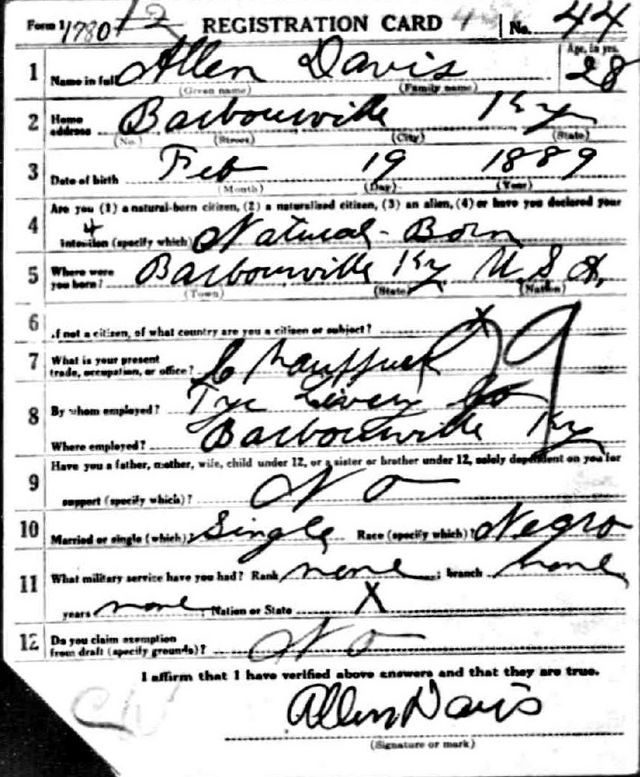 Form 1 1780 12 REGISTRATION CARD No. 44
1 Name in full Allen Davis Age, in yrs. 28
(Given name) (Family name)
2 Home address Barbourville Ky
(No.) (Street) (City) (State)
3 Date of birth Feb 19 1889
(Month) (Day) (Year)
Are you (1) a natural-born citizen, (2) a naturalized citizen, (3) an alien, (4) or have you declared your
4 intention (specify which) Natural-Born
5 Where were you born? Barbourville Ky U.S.A.
(Town) (State) (Nation)
6 If not a citizen, of what country are you a citizen or subject? X
7 What is your present trade, occupation, or office? Chauffuer 29
8 By whom employed? Tye Livery Co
Where employed? Barbourville Ky
Have you a father, mother, wife, child under 12, or a sister or brother under 12, solely dependent on you for
9 support (specify which)? No
10 Married or single (which)? Single Race (specify which)? Negro
11 What military service have you had? Rank none ; branch none
years none Nation or State X
12 Do you claim exemption from draft (specify grounds)? No
I affirm that I have verified above answers and that they are true.
Allen Davis
(Signature or mark)